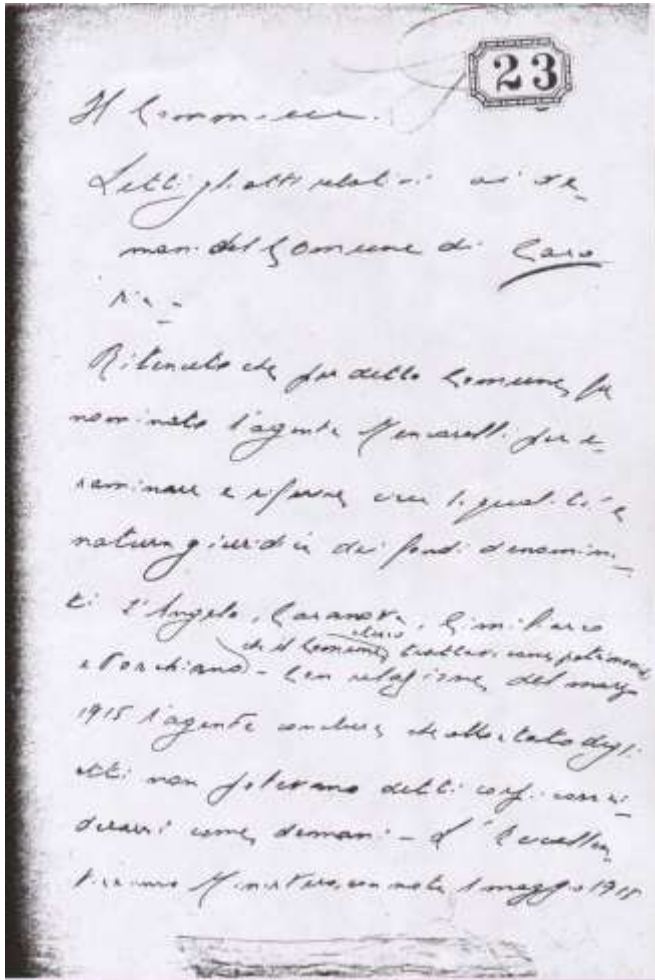 23
Il Commissario
Letti gli atti relativi ai de-
mani del Comune di Caso
ria -
Ritenuto che per detto Comune fu
nominato l'agente Mencarelli per e-
saminare e riferire circa la qualità e
natura giuridica dei fondi denomina-
ti L'Angelo, Casanova,
che il Comune come patrimonio
e Torchiano - Con relazione del marzo
1915 l'agente concluse che allo stato degli
atti non potevano detti corpi consi-
derarsi come demani - L'Eccellen-
tissimo Ministero, con nota 1 maggio 1915